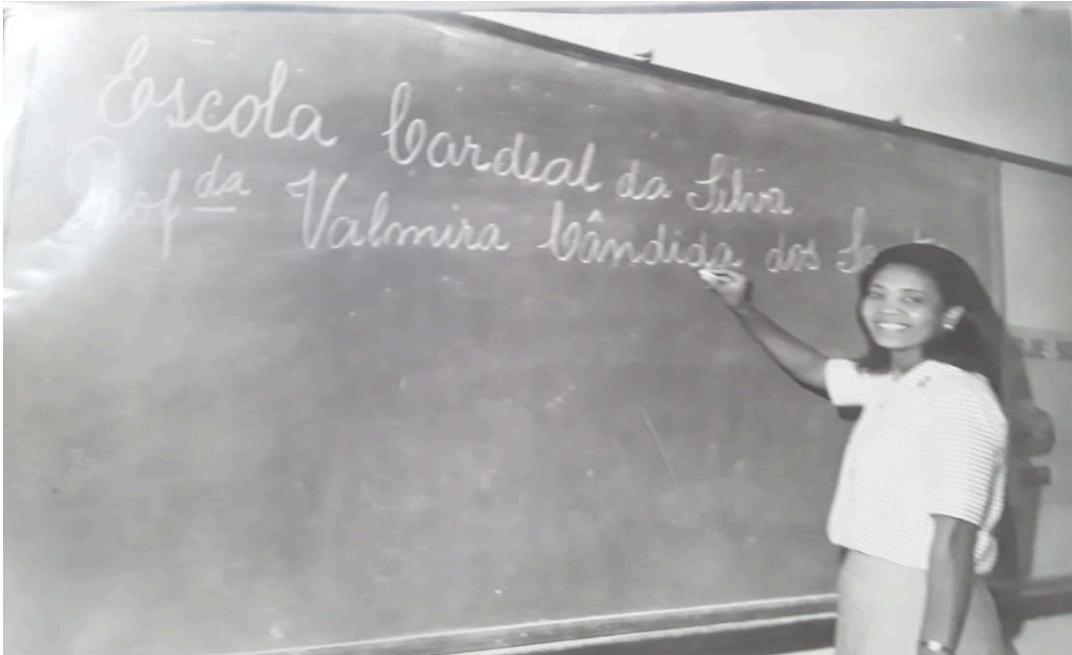 Escola Cardeal da Silva
Prof da Valmira Cândida dos